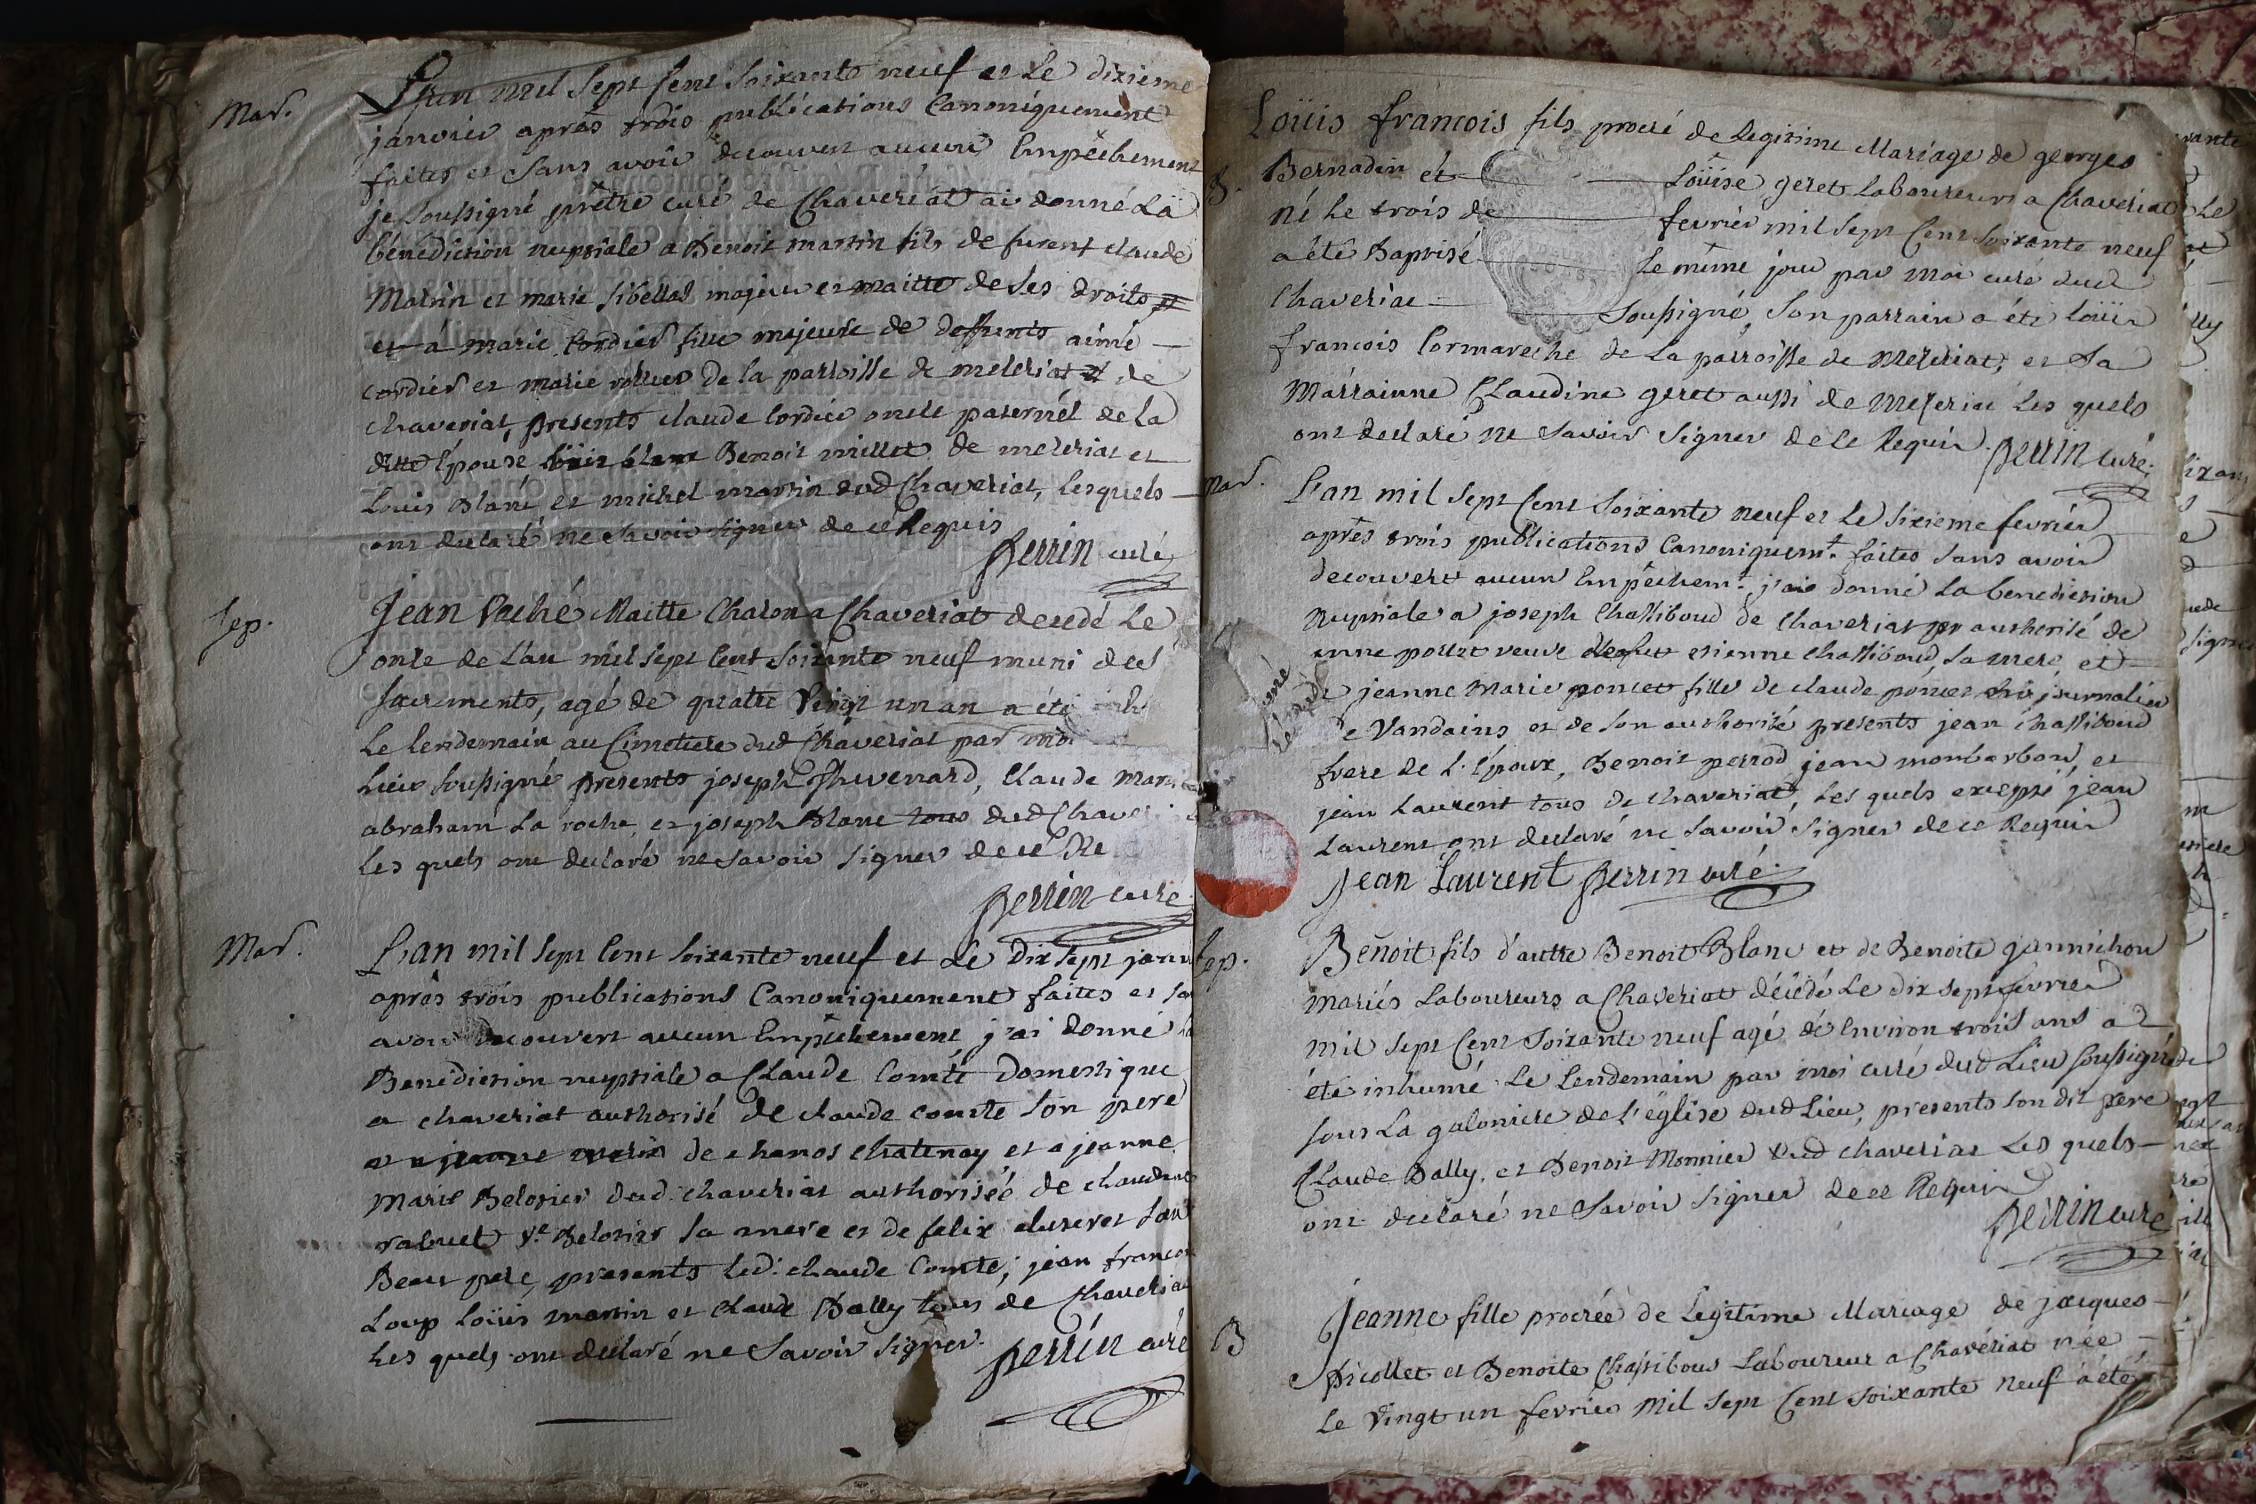 Mar.
L'an mil sept Cent soixante neuf et Le dixieme
janvier apràs trois publications Canoniquement
faites et sans avoir decouvert aucun Empêchement
je soussigné prêtre curé de Chaveriat ai donné La
bénédiction nuptiale a Benoit martin fils de furent claude
Matrin et marie sibellas majeur et maitte de ses droits et
et à marie Cordier fille majeure de deffunts aimé
cordier et marie vollier De la parroisse de meleriat et de
chaveriat, presents claude Cordier oncle paternel de la
ditte Epouse louis blanc Benoit millet de meleriat et
Louis Blanc et michel martin dud Chaveriat, lesquels
ont declaré ne savoir signer de ce Requis
perrin curé
Sep.
Jean Vaché Maitte Charon a Chaveriat decedé Le
onze de L'an mil sept Cent soixante neuf muni des
sacrements, agé de quatte Vingt un an a été
Le lendemain au Cimetiere dud Chaveriat par moi
Lieu soussigné presents joseph thevenard, Claude Mar
abraham La roche, et joseph Blanc tous dud Chaveri
Les quels ont declaré ne savoir signer de ce Re
perrin curé
Mar.
L'an mil sept Cent soixante neuf et Le Dix sept janv
après trois publications Canoniquement faites et sa
avoir decouvert aucun Empêchement j'ai donné la
Benediction nuptiale a Claude Comte Domestique
a chaveriat authorisé de claude comte son pere
a a jeanne marie de chanos chatenay et a jeanne
Marie Belosier dud. chaveriat authorisée de claudine
rabuel Ve Belosier sa mere et de felix eluseret son
Beau pere, presents led. claude Comte; jean francois
Loup Loüis martin et claude Bally tous de Chaveriat
Les quels ont declaré ne savoir signer.
perrin curé
B.
Loüis francois fils procré de Legitime Mariage de georges
Bernadin et Loüise geret Laboureurs a Chaveriat
né Le trois de fevrier mil sept Cent soixante neuf et
a été Baptisé Le même jour par moi curé dud
Chaveriat soussigné, son parrain a été loüis
francois Cormareche de La parroisse de Mezeriat, et sa
Marrainne Claudine geret aussi de Mezeriat Les quels
ont declaré ne savoir signer de ce Requis
perrin curé.
Mar.
L'an mil sept Cent soixante neuf et Le sixieme fevrier
après trois publications Canoniquemt. faites sans avoir
decouvert aucun Empêchemt. j'ai donné La benediction
nuptiale a joseph Chassiboud de Chaveriat par authorité de
anne poncet veuve defut etienne Chassiboud, sa mere et
jeanne Marie poncet fille de claude poncet journalier
de Vandains et de son authorité presents jean Chassiboud
frere de L'Epoux, Benoit perrod, jean monbarbon, et
jean Laurent tous de chaveriat, Les quels excepté jean
Laurent ont declaré ne savoir signer de ce Requis
jean Laurent perrin curé.
Sep.
Benoit fils d'autte Benoit Blanc et de Benoite jannichon
mariés Laboureurs a Chaveriat décédé Le dix sept fevrier
mil sept Cent soixante neuf agé de Environ trois ans a
été inhumé Le Lendemain par moi curé dud Lieu soussigné
sous La galoniere de L'église dud Lieu, presents son dit pere
Claude Bally, et Benoit Monnier dud chaveriat Les quels
ont declaré ne savoir signer de ce Requis
perrin curé
B
Jeanne fille procréé de Legitime Mariage de jacques
picollet et Benoite Chassibous Laboureur a Chavériat née
Le Vingt un fevrier mil sept Cent soixante neuf à été